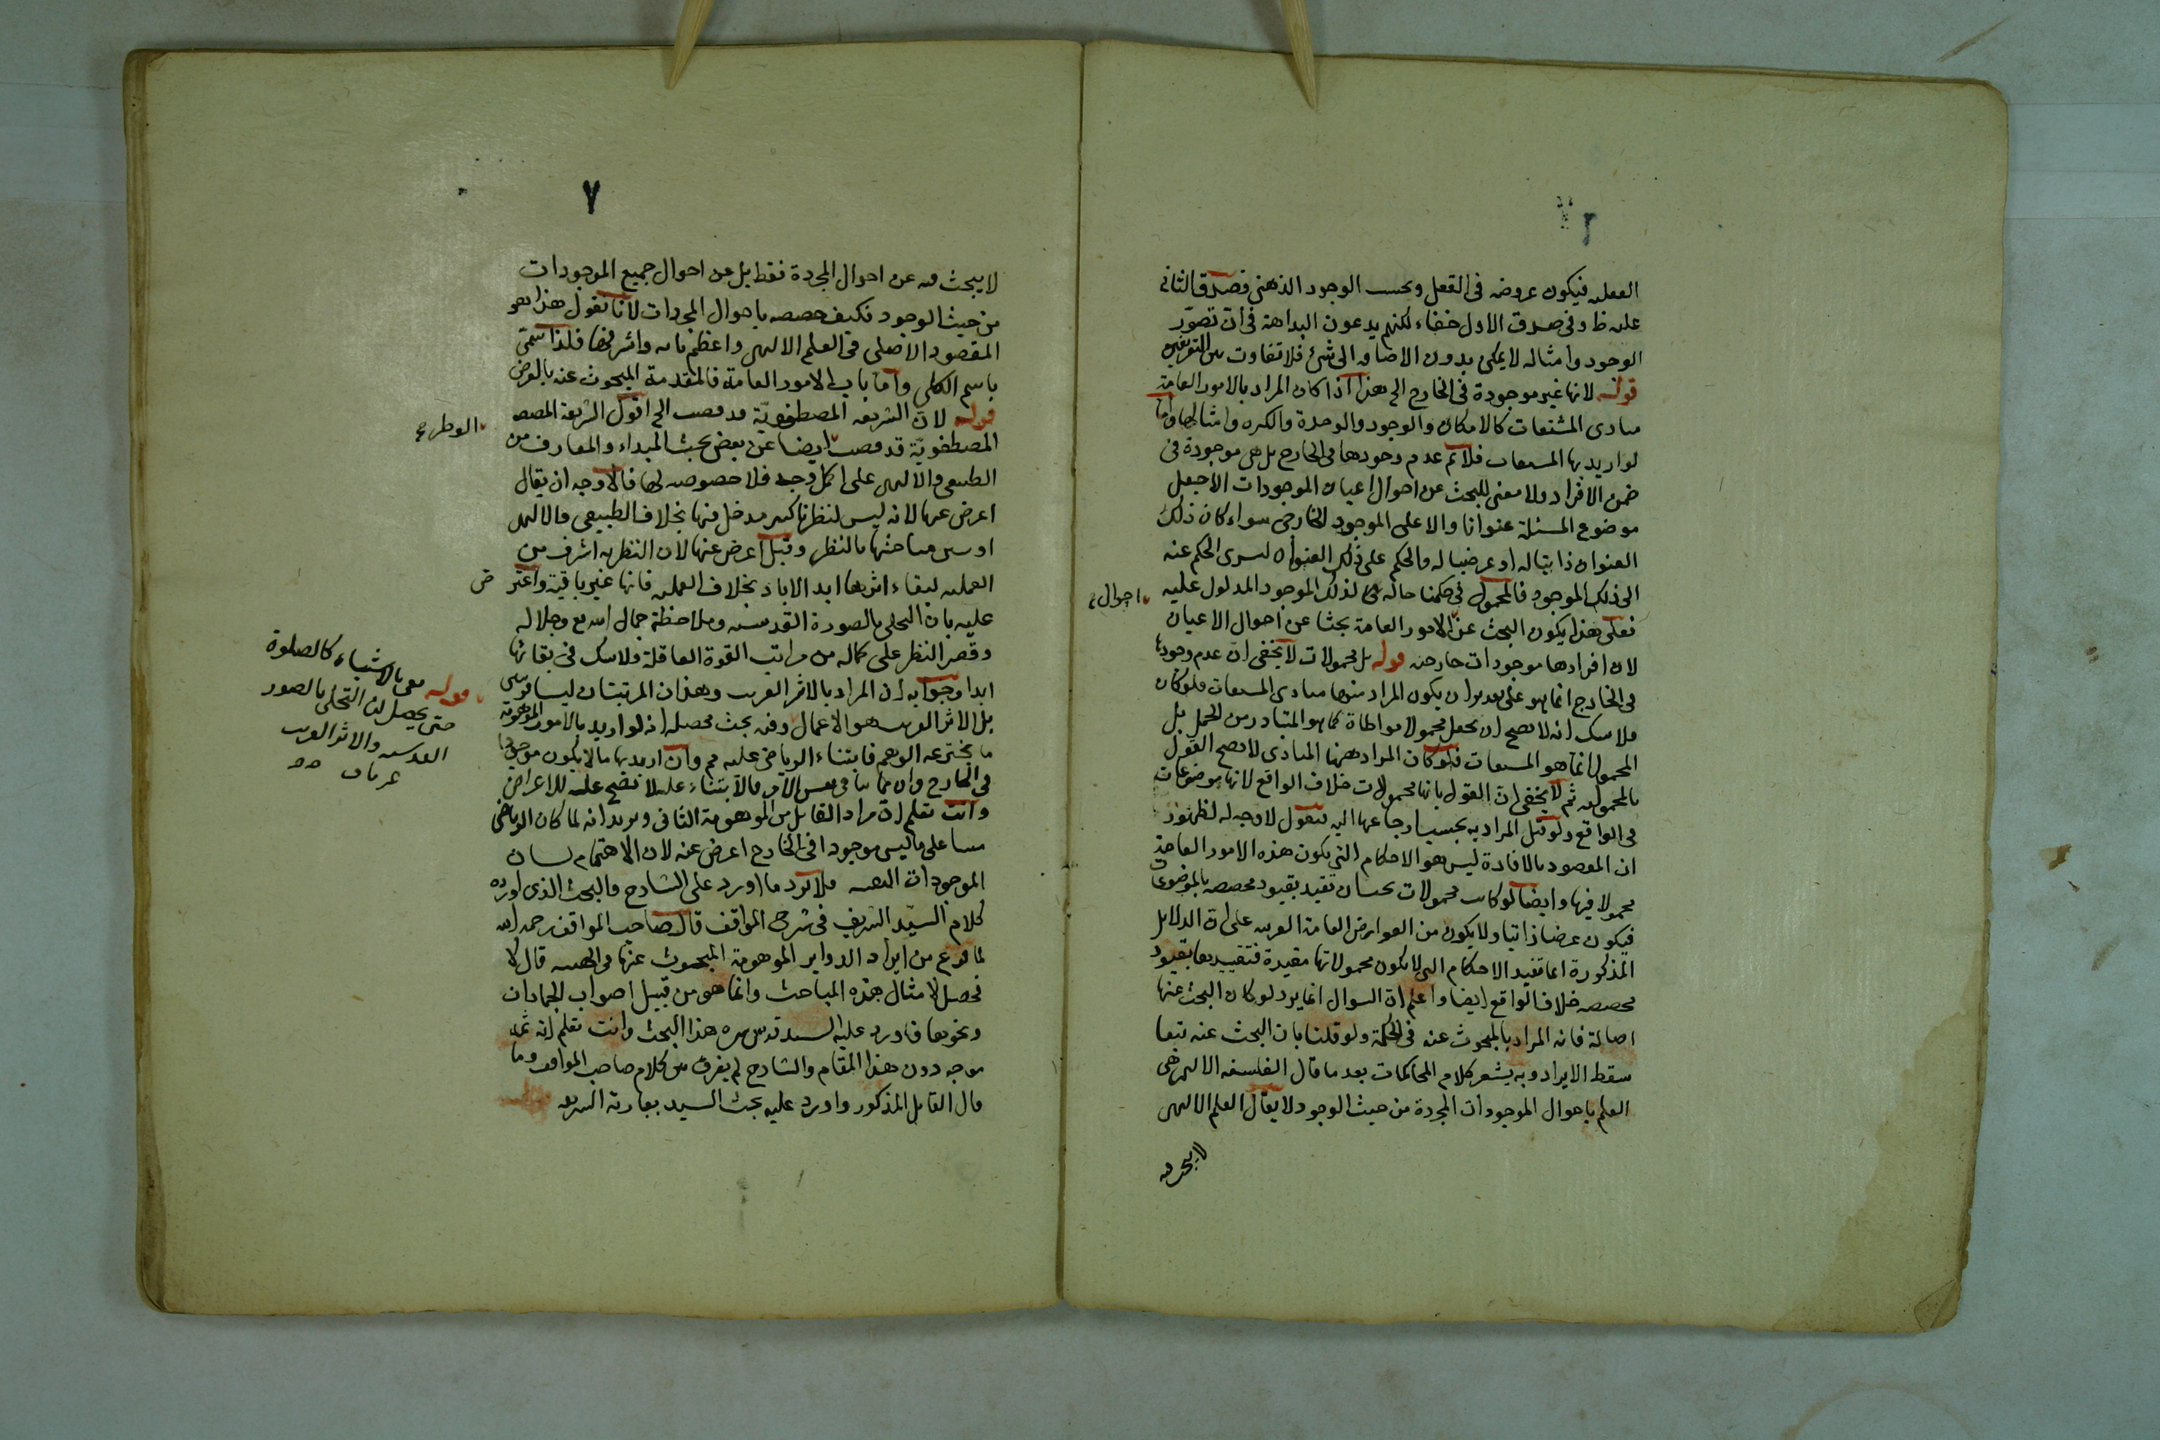 العقل فيكون عروضه فى العقل وبحسب الوجود الذهنى فصدق الثانى
عليه ظ وفى صدق الاول خفاء لكنهم يدعون البداهة فى ان تصوّر
الوجود وامثاله لا يمكن بدون الاضافه الى شئ فلا تفاوت بين التعريفين
قوله لانها غير موجودة فى الخارج الى هذا اذا كان المراد بالامور العامة
مبادى المشتقات كالامكان والوجود والوحدة والكثره وامثالها واما
لو اريد بها المشتقات فلانم عدم وجودها فى الخارج بل هى موجودة فى
ضمن الافراد ولا معنى للبحث عن احوال اعيان الموجودات الا جعل
موضوع المسئلة عنوانا دالا على الموجود الخارجى سواء كان ذلك
العنوان ذاتيا له او عرضيا له والحكم على ذلك العنوان ليسرى الحكم عنه
الى ذلك الموجود فالمحمول فى حكمنا حاله لذلك الموجود المدلول عليه
احوال
فعلى هذا يكون البحث عن الامور العامة بحثا عن احوال الاعيان
لان افرادها موجودات خارجه قوله بل محمولات لا يخفى ان عدم وجودها
فى الخارج انما هو على تقدير ان يكون المراد منها مبادى المشتقات فلو كان
فلا شك انه لا يصح ان يجعل محمولا مواطاة كما هو المتبادر من الحمل بل
المحمول انما هو المشتقات فلو كان المراد ههنا المبادى لا يصح القول
بالمحموليه ثم لا يخفى ان القول بانها محمولات خلاف الواقع لانها موضوعات
فى الواقع ولو قيل المراد به بحسب ارجاعها اليه فنقول لا وجه له لظهور
ان المقصود بالافادة ليس هو الاحكام التى يكون هذه الامور العامة
محمولا فيها وايضا لو كانت محمولات بحسان تقيد بقيود مخصصه بالموضوع
فيكون عرضا ذاتيا ولا يكون من العوارض العامة الغريبه على ان الدلايل
المذكورة انما تفيد الاحكام التى لا يكون محمولاتها مقيدة فتقييدها بقيود
مخصصه خلاف الواقع ايضا واعلم ان السوال انما يرد لو كان البحث عنها
اصالة فانه المراد بالمبحوث عنه فى الحكمة ولو قلنا بان البحث عنه تبعا
سقط الايراد وبه يشعر كلام المحاكمات بعد ما قال الفلسفه الالهى هى
العلم باحوال الموجودات المجردة من حيث الوجود لا يقال العلم الالهى
لا يبحث فيه
٧
لا يبحث فيه عن احوال المجردة فقط بل عن احوال جميع الموجودات
من حيث الوجود فكيف خصصه باحوال المجردات لانا نقول هذا هو
المقصود الاصلى فى العلم الالهى واعظم بابه واشرفها فلذا سمّى
باسم الكلى واما باب الامور العامة فالمقدمة المبحوث عنه بالعرض
قوله لان الشريعه المصطفويّة قد قضت الخ اقول الشريعة
الوطر
المصطفويّة قد قضت ايضا عن بعض بحث المبداء والمعارف من
الطبيعى والالهى على اكمل وجه فلا خصوصيه لها فالاوجه ان يقال
اعرض عنها لانه ليس لنظرنا كثير مدخل فيها بخلاف الطبيعى والالهى
اذ بين مباحثها بالنظر وقيل اعرض عنها لان النظريه اشرف من
العمليه لبقاء اثرها ابد الاباد بخلاف العمليه فانها غير باقية واعتر
ض
عليه بان التحلى بالصورة القدسيه وملاحظة جمال الله مع وجلاله
وقصر النظر على كماله من مراتب القوة العاقلة ولا شك فى بقائها
ابدا وجوابه ان المراد بالاثر القريب وهذان المرتبتان ليسا
بل الاثر القريب هو الاعمال وفيه بحث محصله انه لو اريد بالامور الموهومة
ما يخترعه الوهم فابتناء الرياضى عليه مم وان اريد بها ما لا يكون موجودا
فى الخارج وان كانت فى نفس الامر فالابتناء عليه لا تصح علة للاعراض
وانت تعلم ان مراد القائل من الموهومة الثانى ويريد انه لما كان الرياضى
مبنيا على ما ليس موجودا فى الخارج اعرض عنه لان الاهتمام لبيان
الموجودات العينيه فلا يرد ما اورد على الشارح والبحث الذى اورده
كلام السيّد الشريف فى شرح المواقف قال صاحب المواقف رحمه الله
لما فرغ من ايراد الدواير الموهومة المبحوث عنها فى الهيئه قال لا
تحصل لامثال هذه المباحث وانما هو من قبيل اصوات الجمادات
ونحوها فاورد عليه السيد قدس سره هذا البحث وانت تعلم انه ثمه
موجه دون هذا المقام والشارح لم يفرق بين كلام صاحب المواقف وما
قال القايل المذكور واورد عليه بحث السيد بعبارته الشريفه
قوله يعنى بالاشياء كالصلوة
حتى يحصل لنا التحلى بالصور
القدسيه والاثر القريب